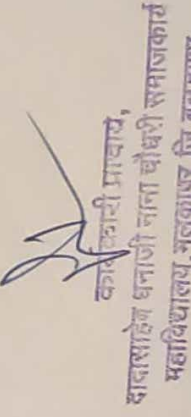 कार्यकारी प्राचार्य,
दादासाहेब धनाजी नाना चौधरी समाजकार्य
महाविद्यालय,